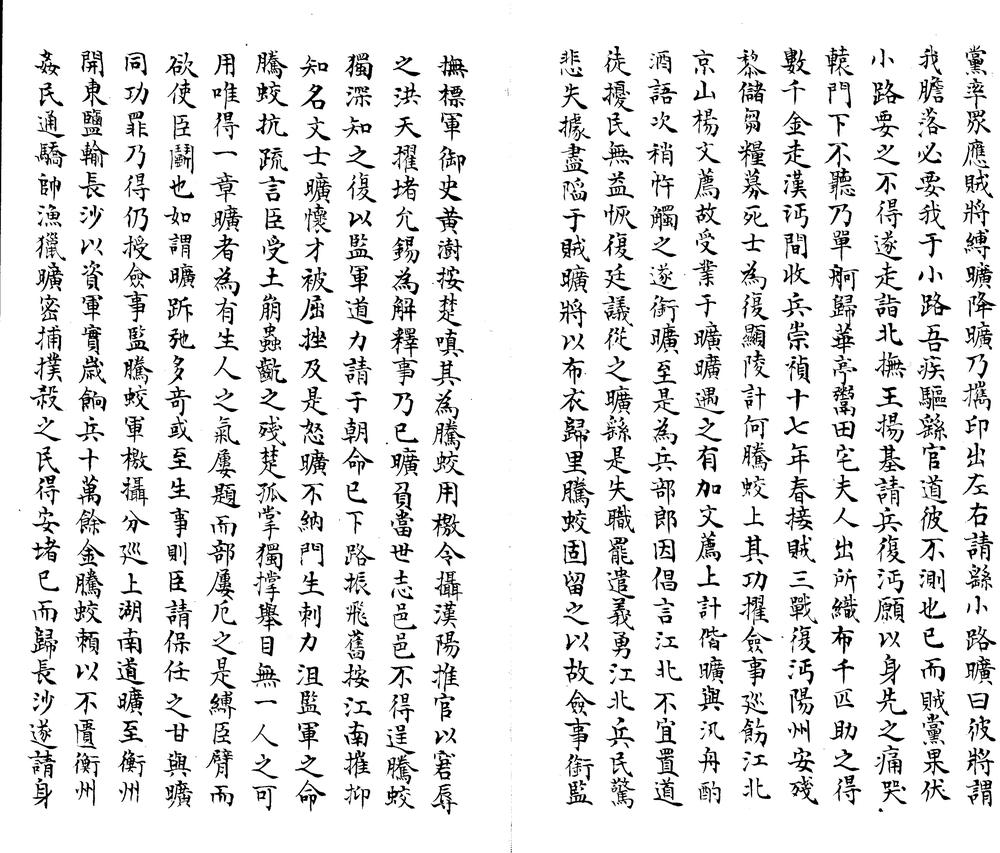 黨率眾應賊將縛曠降曠乃攜印出左右請繇小路曠曰彼將謂
我膽落必要我于小路吾疾驅繇官道彼不測也已而賊黨果伏
小路要之不得遂走詣北撫王揚基請兵復沔願以身先之痛哭
轅門下不聽乃單舸歸華亭鬻田宅夫人出所織布千匹助之得
數千金走漢沔間收兵崇禎十七年春接賊三戰復沔陽州安殘
黎儲芻糧募死士為復顯陵計何騰蛟上其功擢僉事巡飭江北
京山楊文薦故受業于曠曠遇之有加文薦上計偕曠與汎舟酌
酒語次稍忤觸之遂銜曠至是為兵部郎因倡言江北不宜置道
徒擾民無益恢復廷議從之曠繇是失職罷遣義勇江北兵民驚
悲失據盡陷于賊曠將以布衣歸里騰蛟固留之以故僉事銜監
撫標軍御史黃澍按楚嗔其為騰蛟用檄令攝漢陽推官以窘辱
之洪天擢堵允錫為解釋事乃已曠負當世志邑邑不得逞騰蛟
獨深知之復以監軍道力請于朝命已下路振飛舊按江南摧抑
知名文士曠懷才被屈挫及是怒曠不納門生刺力沮監軍之命
騰蛟抗疏言臣受土崩蟲齕之殘楚孤掌獨撐舉目無一人之可
用唯得一章曠者為有生人之氣屢題而部屢卮之是縛臣臂而
欲使臣鬭也如謂曠跅弛多奇或至生事則臣請保任之甘與曠
同功罪乃得仍授僉事監騰蛟軍檄攝分巡上湖南道曠至衡州
開東鹽輸長沙以資軍實歲餉兵十萬餘金騰蛟賴以不匱衡州
姦民通驕帥漁獵曠密捕撲殺之民得安堵已而歸長沙遂請身